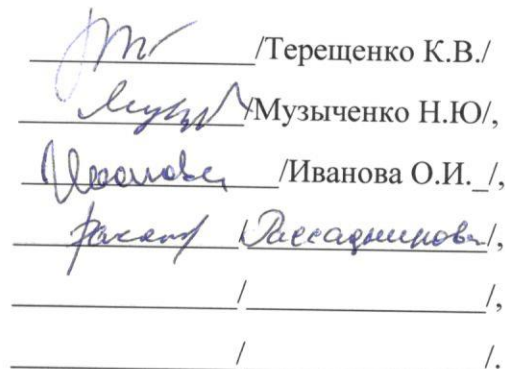 /Терещенко К.В./
/Музыченко Н.Ю/,
Иванова /Иванова О.И._/,
/Рассадникова/,
/ /,
/ /.